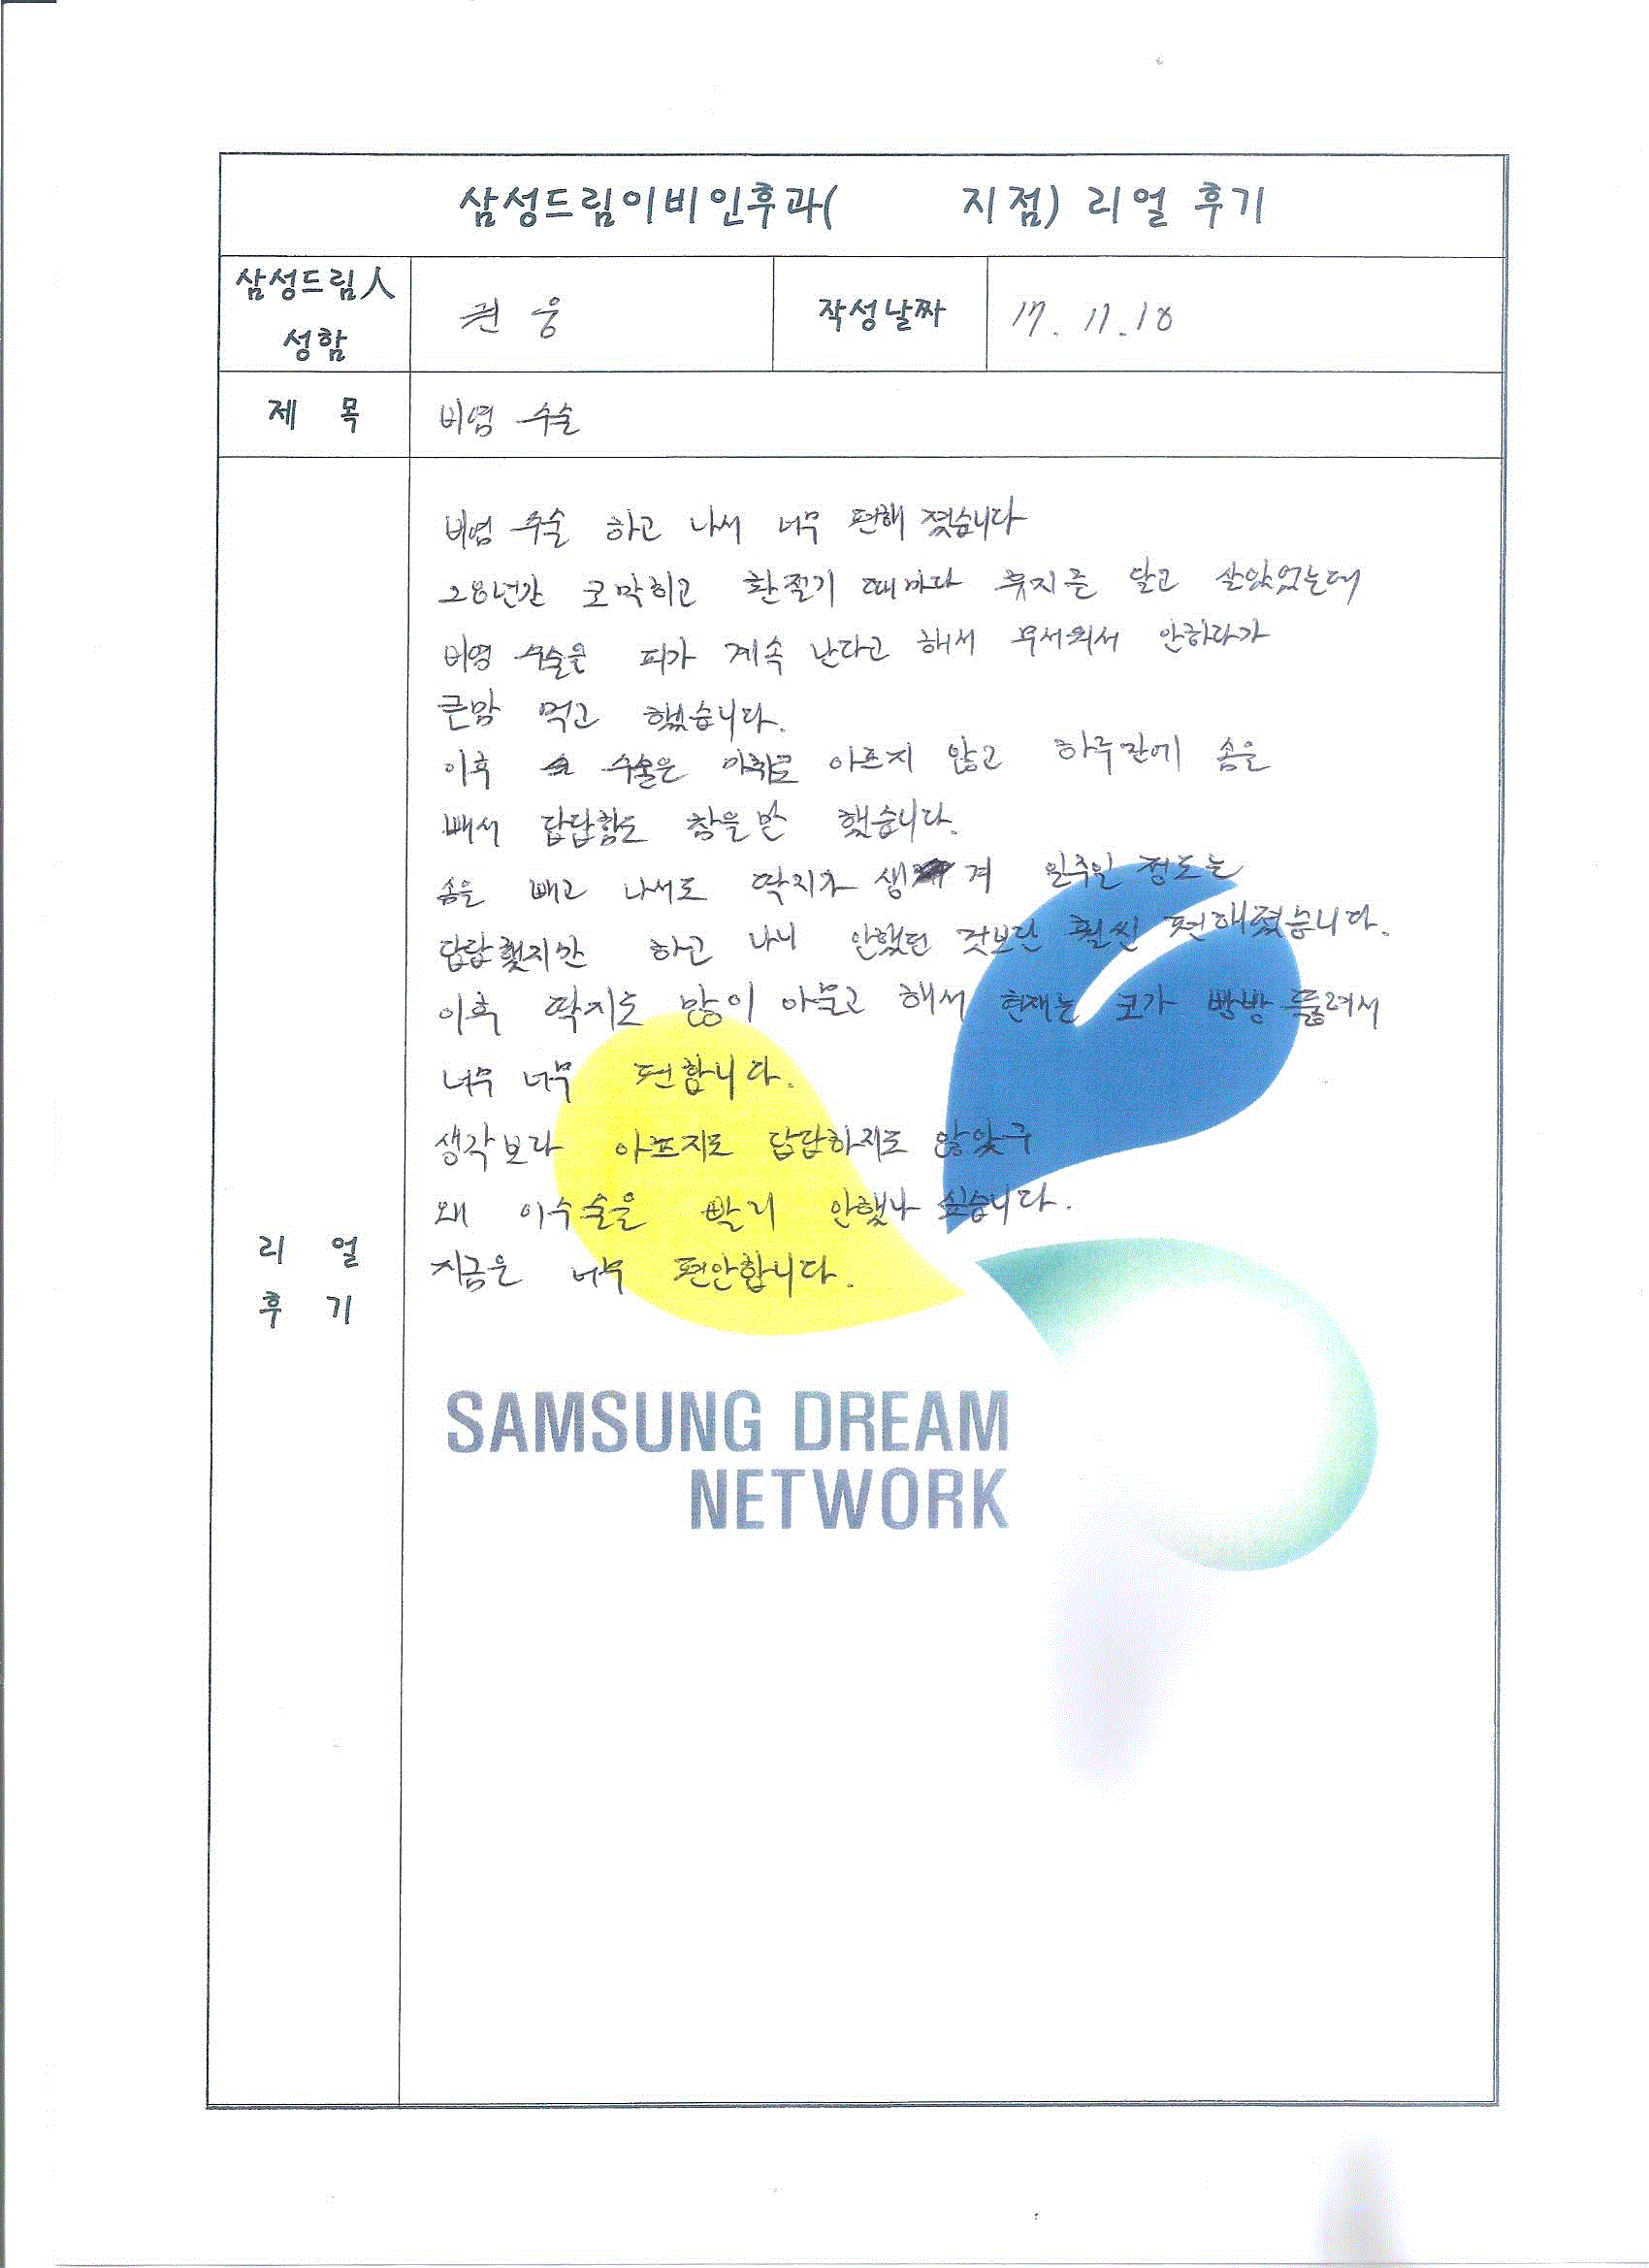 삼성드림이비인후과( 지점) 리얼 후기
삼성드림人
성함
권 웅
작성날짜
17. 11. 18
제 목
비염 수술
비염 수술 하고 나서 너무 편해 졌습니다
28년간 코막히고 환절기 때마다 휴지를 달고 살았었는데
비염 수술은 피가 계속 난다고 해서 무서워서 안하다가
큰맘 먹고 했습니다.
이후 수술은 아프지 않고 하루만에 솜을
빼서 답답함도 참을만 했습니다.
솜을 빼고 나서도 딱지가 생겨 일주일 정도는
답답했지만 하고 나니 안했던 것보단 훨씬 편해졌습니다.
이후 딱지도 많이 아물고 해서 현재는 코가 빵빵 뚫려서
너무 너무 편합니다.
생각보다 아프지도 답답하지도 않았구
왜 이수술을 빨리 안했나 싶습니다.
지금은 너무 편안합니다.
리 얼
후 기
SAMSUNG DREAM
NETWORK